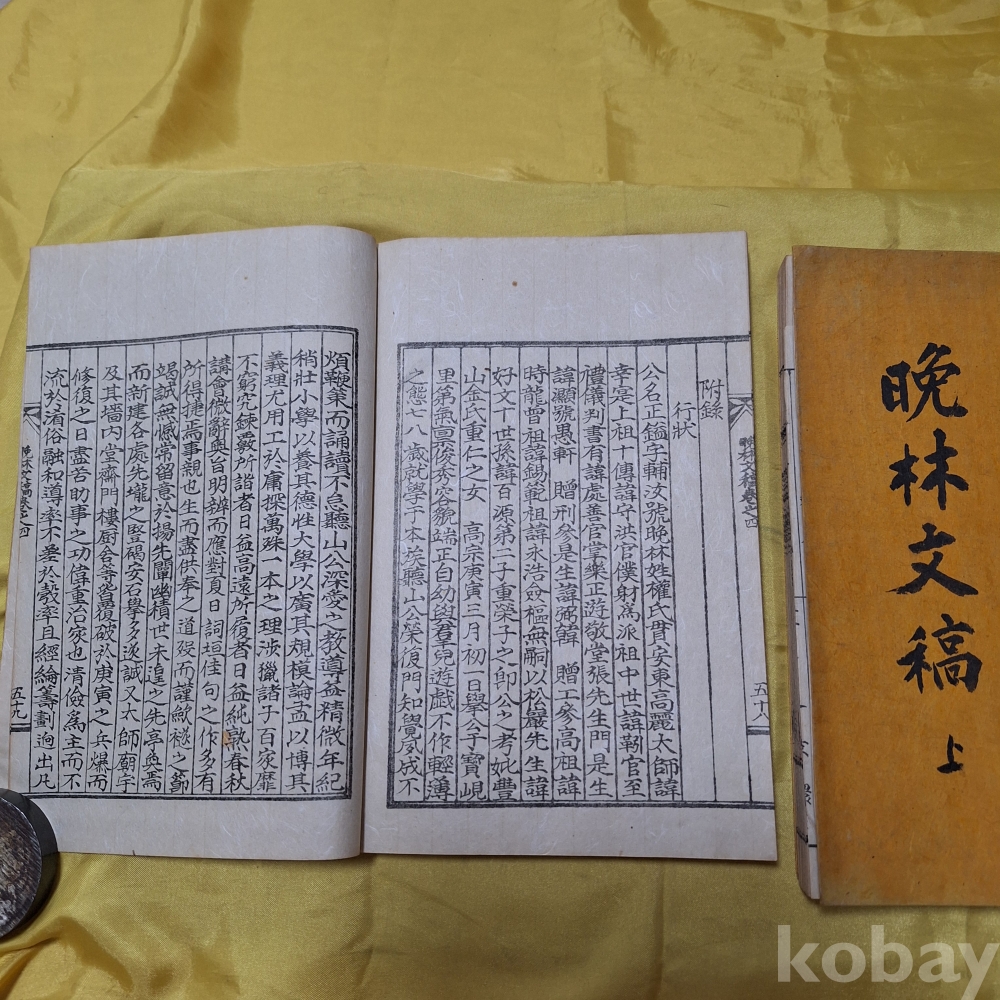 附錄
行狀
公名正鎰字輔汝號晚林姓權氏貫安東高麗太師諱
幸是上祖十傳諱守洪官僕財爲派祖中世諱靷官至
禮儀判書有諱處善官掌樂正遊敬堂張先生門是生
諱灝號愚軒 贈刑參是生諱弼韓 贈工參高祖諱
時龍曾祖諱錫範祖諱永浩 樞無嗣以松嚴先生諱
好文十世孫諱百源第二子重榮子之即公之考妣豐
山金氏重仁之女 高宗庚寅三月初一日擧公于寶峴
里第氣禀俊秀容貌端正自幼與羣兒遊戱不作輕薄
之態七八歲就學于本族聽山公榮復門知覺夙成不
晚林文稿卷之四
五十八
煩鞭策而誦讀不怠聽山公深愛之敎導益精微年紀
稍壯小學以養其德性大學以廣其規模論孟以博其
義理尤用工於庸探萬殊一本之理涉獵諸子百家靡
不窮究鍊覈所詣者日益高遠所履者日益純熟春秋
講會微辭奧旨明辨而應對夏日詞垣佳句之作多有
所得捷焉事親也生而盡供奉之道歿而謹歛襚之節
竭誠無憾常留意於揚先闡幽積世未遑之先亭奐焉
而新建各處先壠之竪碣安石擧多遂誠又太師廟宇
及其墻內堂齋門樓厨舍等皆覆破於庚寅之兵爆而
修復之日盡苦助事之功偉重治家也清儉爲主而不
流於渚俗融和導率不差於彀率且經綸籌劃迥出凡
晚林文稿卷之四
五十九
晚林文稿 上
kobay